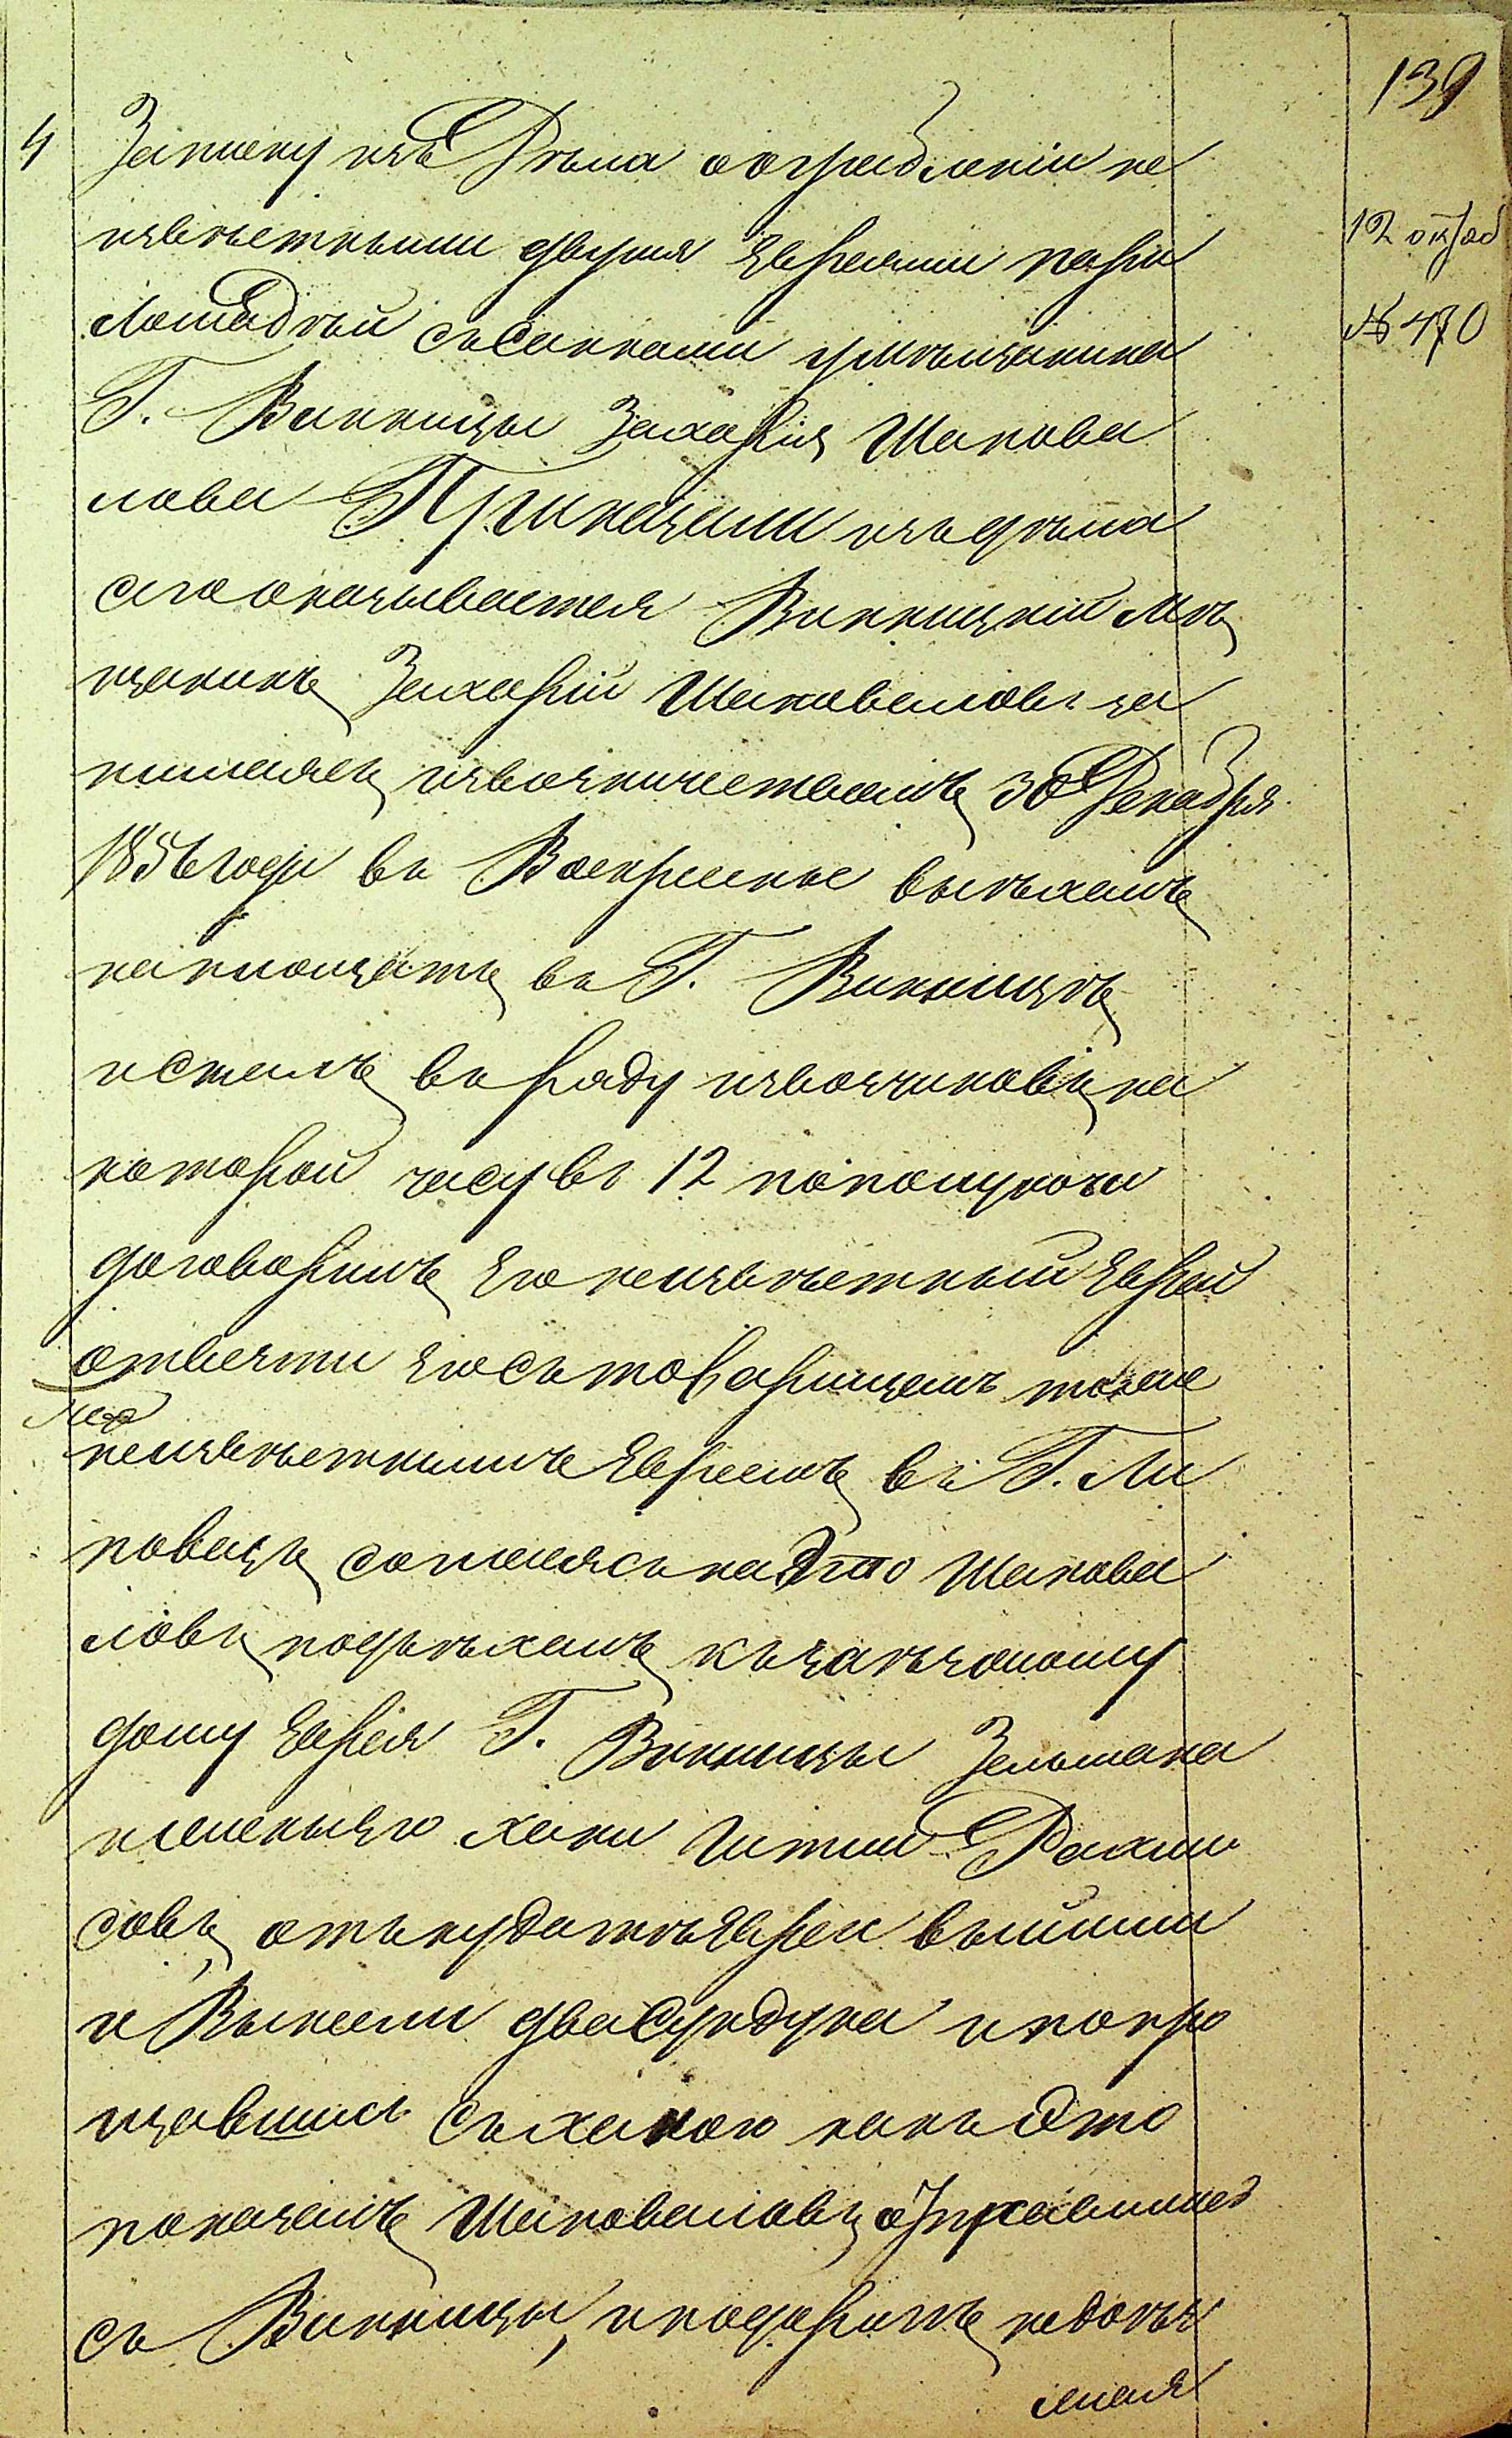 139
4 Записку изъ Дѣла о ограбленіи не
извѣстными двумя Евреями пары
Лошадѣй съ Санками у мѣщанина
Г. Винницы Захарія Шапова
лова Принѣципи изъ дѣла
сего оказывается Винницкій Мѣ
щанинъ Захарій Шаповаловъ за
нимаясь извозничествомъ 30 Декабря
1856 году въ Воскресенье выѣхалъ
на площать въ Г. Винницѣ
и сталъ въ ряду извозчиковъ на
которой часу въ 12 пополуночи
договорилъ Его неизвѣстный Еврей
отвезти Его съ товарищемъ тоже
неизвѣстнымъ Евреемъ въ Г. Ли
повецъ согласясь на Это Шапова
ловъ подъѣхалъ къ заѣзжому
дому Еврея Г. Винницы Зельмана
и жены Его Хаки Итти Рахми
совъ, отъкуда тѣ Евреи вышли
и Вынесли два Сундука и попро
щавшись съ Хакою какъ Это
показалъ Шаповаловъ отправились
съ Винницы, и подарилъ недоѣз
жая
12 октяб
№ 470